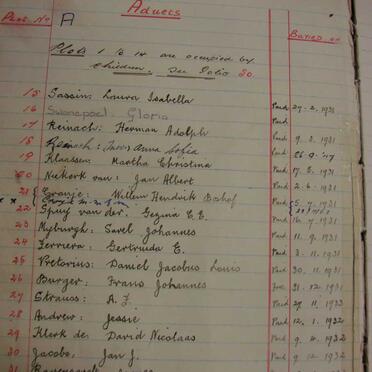 Plot No A Adults Buried on
Plots 1 to 14 are occupied by
Children. See Folio 20.
15 Sassin: Laura Isabella Paid 27. 2. 1931
16 Swanepoel Gloria Paid
17 Reinach: Herman Adolph Paid 9. 3. 1931
18 Anna Sofia
19 Klaassen: Martha Christina Paid 17. 5. 1931
20 Niekerk van: Jan Albert Paid 2. 6. 1931
21 Oranje: Willem Hendrick Boshof Paid 5. 7. 1931
22 Spuy van der: Gezina E.E. Paid 16. 7. 1931
23 Myburgh: Sarel Johannes Paid 11. 9. 1931
24 Ferriera: Gertruida E. Paid 3. 11. 1931
25 Pretorius: Daniel Jacobus Louis Paid 30. 11. 1931
26 Burger: Frans Johannes 31. 12. 1931
27 Strauss: A. J. Paid 27. 11. 1932
28 Andrew: Jessie Paid 12. 1. 1932
29 Klerk de: David Nicolaas Paid 9. 4. 1932
30 Jacobs, Jan J. Paid 9. 12. 1932
31